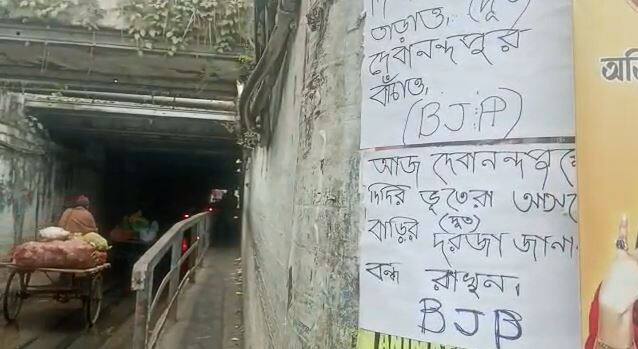 তাড়াও, (দূত)
দেবানন্দপুর
বাঁচাও,
(BJP)
আজ দেবানন্দপুরে
দিদির ভূতেরা আসছে
(দূত)
বাড়ির দরজা জানা
বন্ধ রাখুন।
BJP